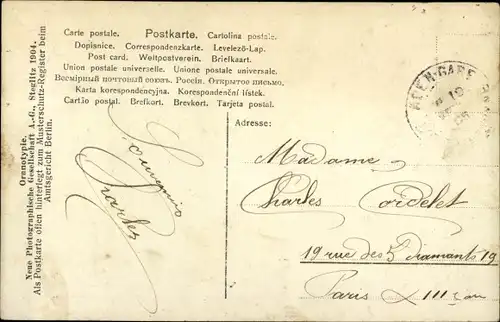 Carte postale. Postkarte. Cartolina postale.
Dopisnice. Correspondenzkarte. Levelező-Lap.
Post card. Weltpostverein. Briefkaart.
Union postale universelle. Unione postale universale.
Всемірный почтовый союзъ. Россія. Открытое письмо.
Karta korespondencyjna. Korespondenční lístek.
Cart.io postal. Brefkort. Brevkort. Tarjeta postal.
Oranotypie.
Neue Photographische Gesellschaft A.-G., Steglitz 1904.
Als Postkarte offen hinterlegt zum Musterschutz-Register beim
Amtsgericht Berlin.
Souvenirs
Charles
Adresse:
Madame
Charles Cordelet
19 rue des 5 Diamants 19
Paris XIII